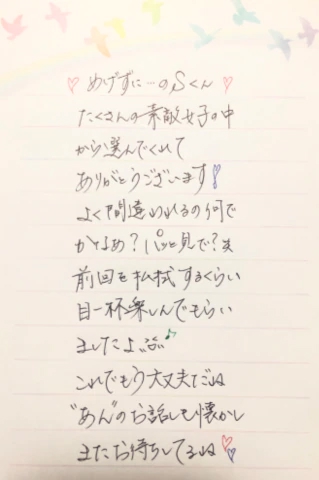 ♡めげずに…のSくん♡
たくさんの素敵女子の中
から選んでくれて
ありがとうございます!
よく間違われるの何で
かなぁ?パッと見で?笑
前回を払拭するくらい
目一杯楽しんでもらい
ましたよ♪
これでもう大丈夫だね
"あん"のお話しも懐かし
またお待ちしてるね♡♡